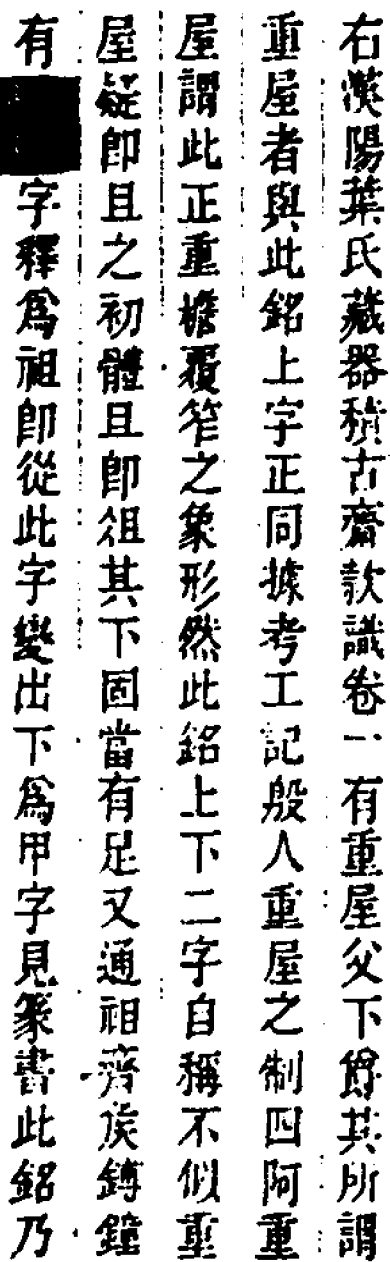 右漢陽葉氏藏器積古齋款識卷一有重屋父下爵其所謂
重屋者與此銘上字正同據考工記殷人重屋之制四阿重
屋謂此正重檐覆笮之象形然此銘上下二字自稱不似重
屋疑即且之初體且即俎其下固當有足又通祖齊侯鎛鐘
有字釋爲祖即從此字變出下爲甲字見篆書此銘乃